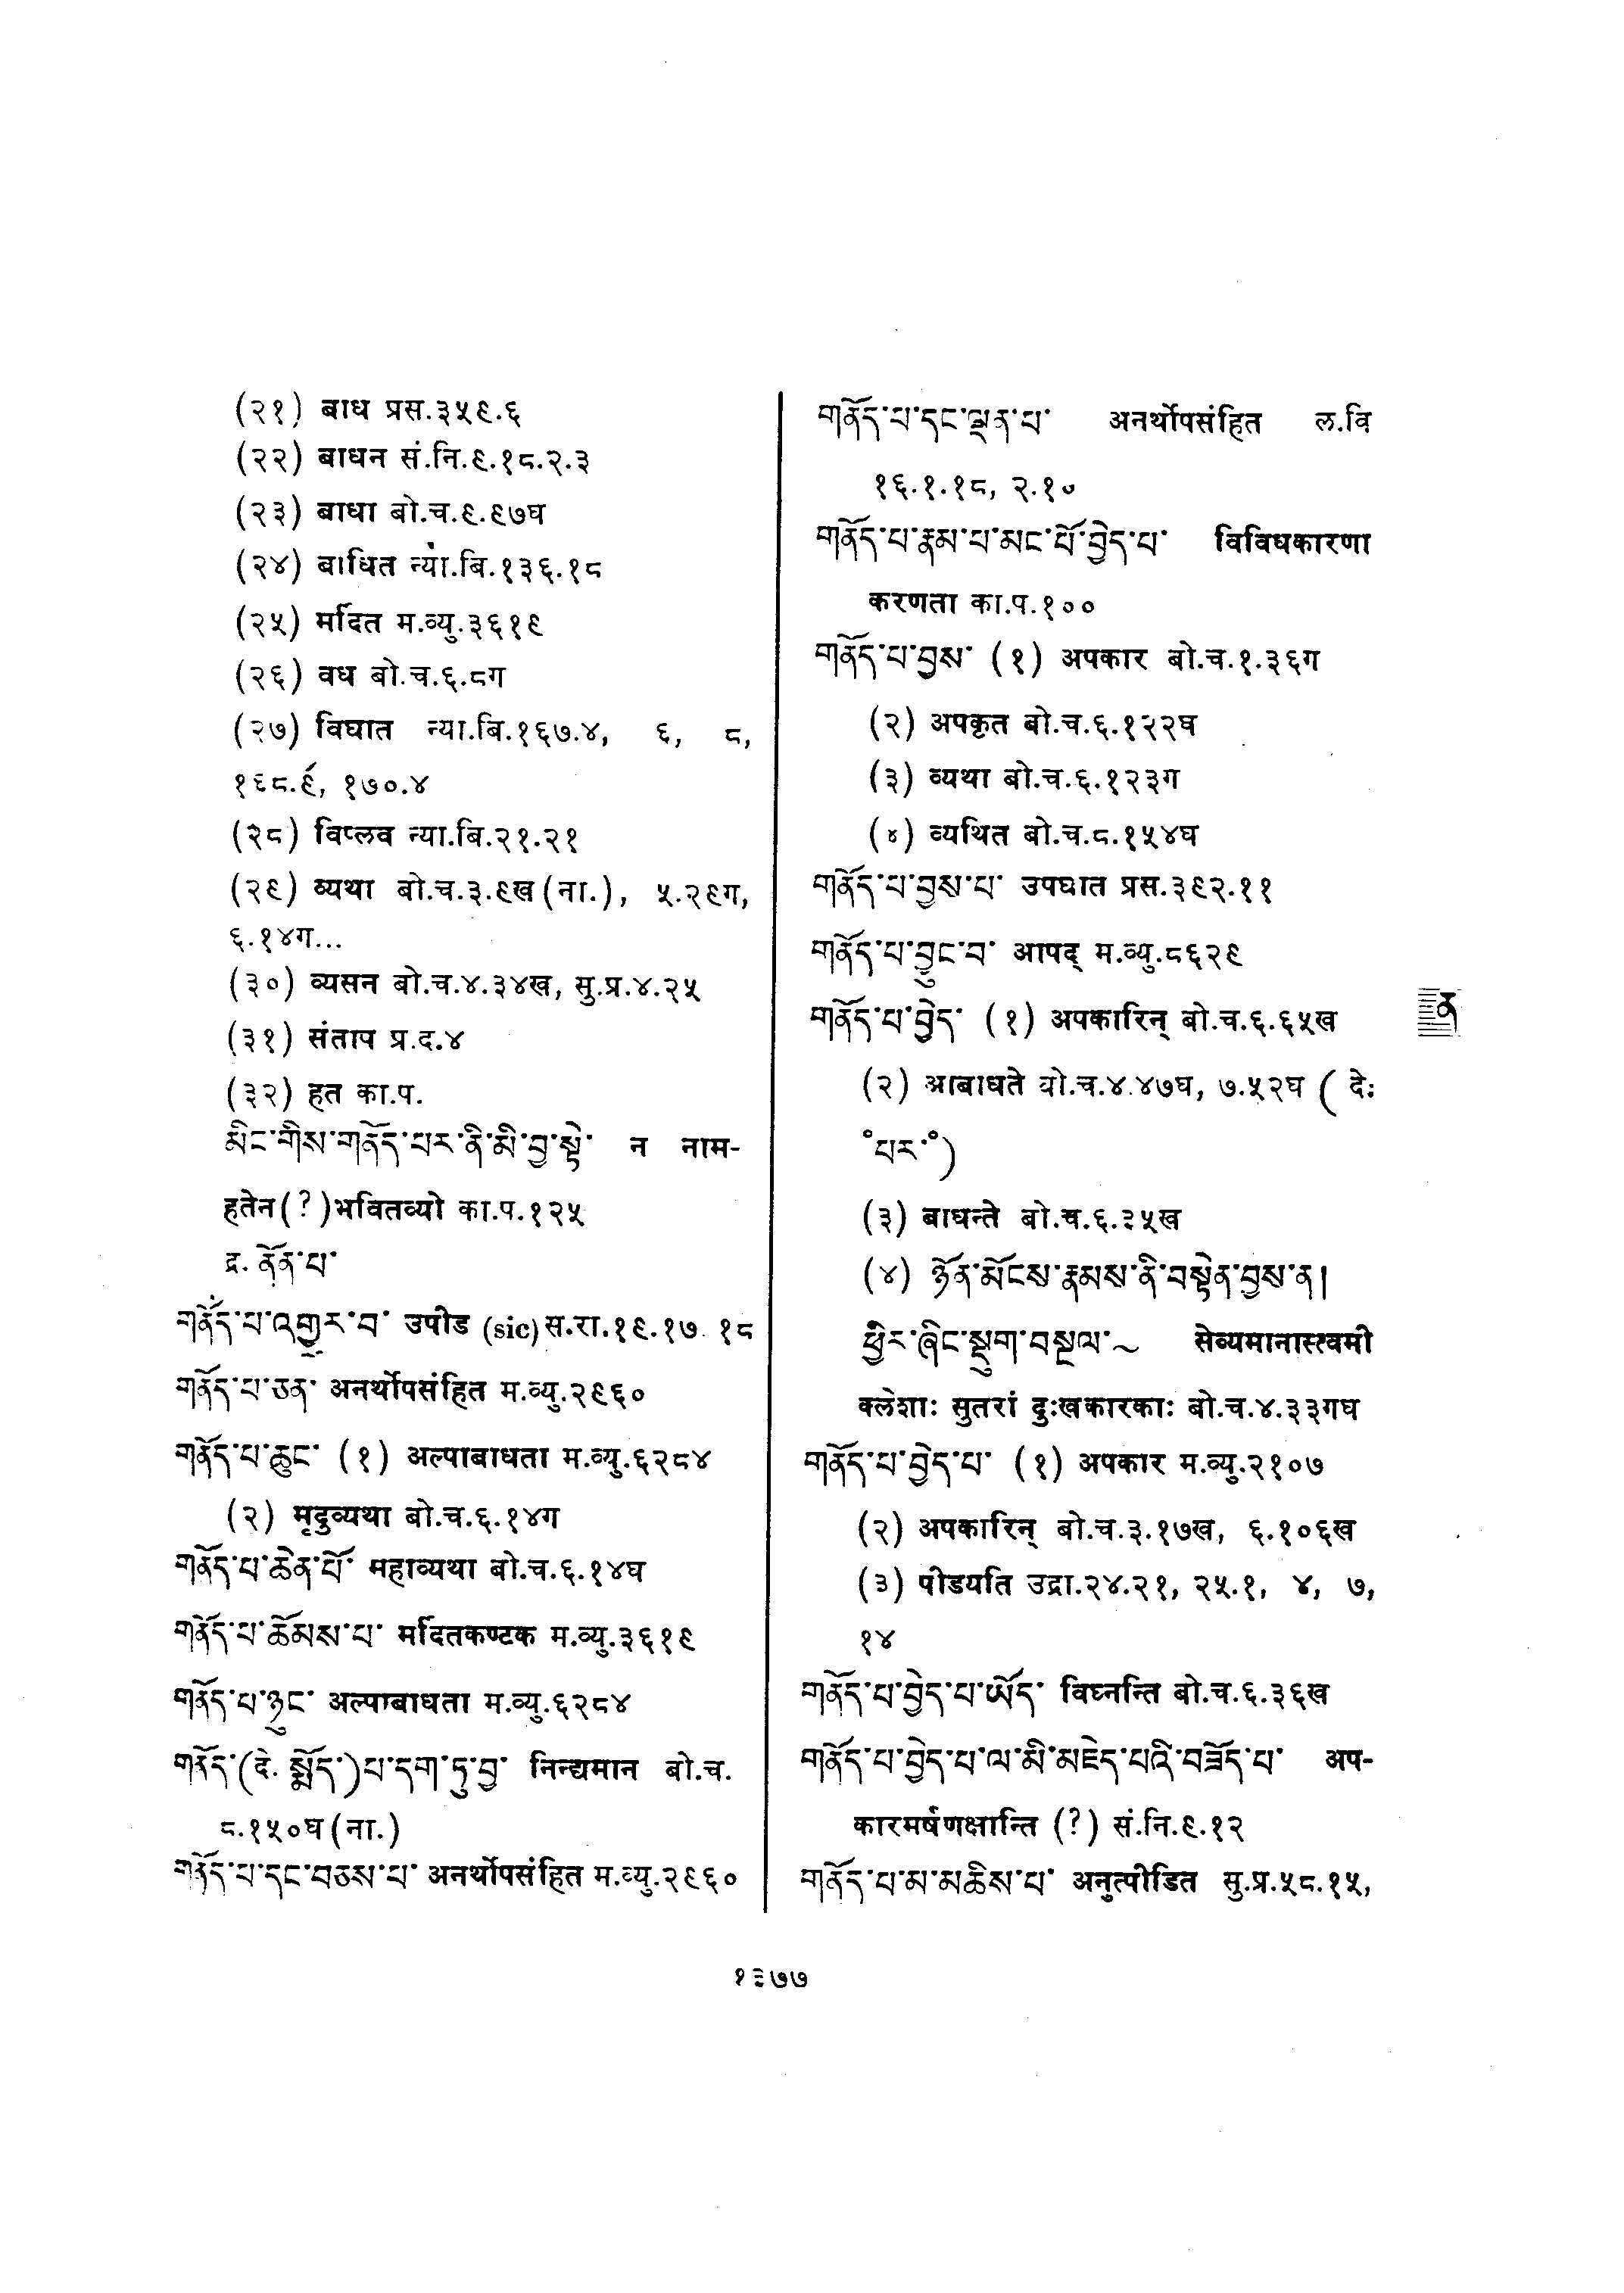 (२१) बाध प्रस.३५९.६
(२२) बाधन सं.नि.९.१८.२.३
(२३) बाधा बो.च.९.९७घ
(२४) बाधित न्या.बि.१३६.१८
(२५) मर्दित म.व्यु.३६१९
(२६) वध बो.च.६.८ग
(२७) विघात न्या.बि.१६७.४, ६, ८,
१६८.९, १७०.४
(२८) विप्लव न्या.बि.२१.२१
(२९) व्यथा बो.च.३.९ख(ना.), ५.२९ग,
६.१४ग...
(३०) व्यसन बो.च.४.३४ख, सु.प्र.४.२५
(३१) संताप प्र.द.४
(३२) हत का.प.
མིང་གིས་གནོད་པར་ནི་མི་བྱ་སྟེ་ न नाम-
हतेन(?)भवितव्यो का.प.१२५
द्र. ནོན་པ་
གནོད་པ་འགྱུར་བ་ उपीड (sic)स.रा.१९.१७ १८
གནོད་པ་ཅན་ अनर्थोपसंहित म.व्यु.२९६०
གནོད་པ་ཆུང་ (१) अल्पाबाधता म.व्यु.६२८४
(२) मृदुव्यथा बो.च.६.१४ग
གནོད་པ་ཆེན་པོ་ महाव्यथा बो.च.६.१४घ
གནོད་པ་ཆོམས་པ་ मर्दितकण्टक म.व्यु.३६१९
གནོད་པ་ཉུང་ अल्पाबाधता म.व्यु.६२८४
གནོད་(दे. སྨོད་)པ་དག་ཏུ་བྱ་ निन्द्यमान बो.च.
८.१५०घ(ना.)
གནོད་པ་དང་བཅས་པ་ अनर्थोपसंहित म.व्यु.२९६०
གནོད་པ་དང་ལྡན་པ་ अनर्थोपसंहित ल.वि
१६.१.१८, २.१७
གནོད་པ་རྣམ་པ་མང་པོ་བྱེད་པ་ विविधकारणा
करणता का.प.१००
གནོད་པ་བྱས་ (१) अपकार बो.च.१.३६ग
(२) अपकृत बो.च.६.१२२घ
(३) व्यथा बो.च.६.१२३ग
(४) व्यथित बो.च.८.१५४घ
གནོད་པ་བྱས་པ་ उपघात प्रस.३९२.११
གནོད་པ་བྱུང་བ་ आपद् म.व्यु.८६२९
གནོད་པ་བྱེད་ (१) अपकारिन् बो.च.६.६५ख
ན
(२) आबाधते बो.च.४.४७घ, ७.५२घ ( दे:
°པར་°)
(३) बाधन्ते बो.च.६.३५ख
(४) ཉོན་མོངས་རྣམས་ནི་བསྟེན་བྱས་ན།
ཕྱིར་ཞིང་སྡུག་བསྔལ་~ सेव्यमानास्त्वमी
क्लेशाः सुतरां दुःखकारकाः बो.च.४.३३गघ
གནོད་པ་བྱེད་པ་ (१) अपकार म.व्यु.२१०७
(२) अपकारिन् बो.च.३.१७ख, ६.१०६ख
(३) पीडयति उद्रा.२४.२१, २५.१, ४, ७,
१४
གནོད་པ་བྱེད་པ་ཡོད་ विघ्नन्ति बो.च.६.३६ख
གནོད་པ་བྱེད་པ་ལ་མི་མཇེད་པའི་བཟོད་པ་ अप-
कारमर्षणक्षान्ति (?) सं.नि.९.१२
གནོད་པ་མ་མཆིས་པ་ अनुत्पीडित सु.प्र.५८.१५,
१३७७